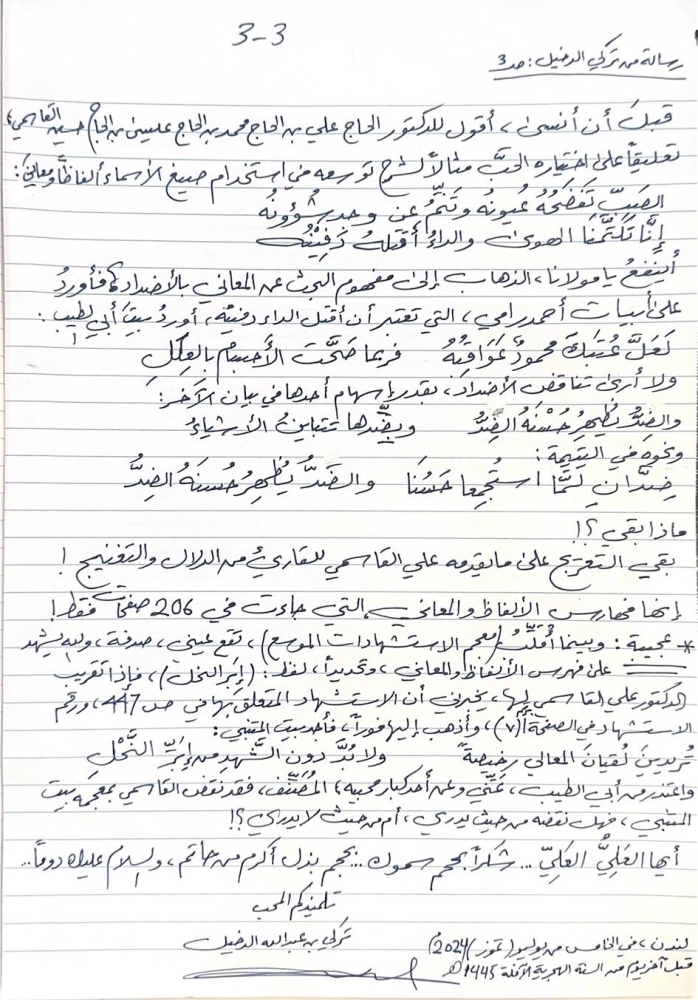 3-3
رسالة من تركي الدخيل: صـ3
قبلَ أن أنسى، أقول للدكتور الحاج علي بن الحاج محمد بن الحاج عيسى بن الحاج حسين القاسمي،
تعليقاً على اختياره الحبَّ مثالاً لشرح توسعه في استخدام صيغ الأسماء ألفاظاً ومعاني:
الصَبّ تَفضَحُهُ عُيونُهُ وتَنَمُّ عن وجدٍ شُؤُونُهُ
إنَّا تَكَتَّمنَا الهوى والداءُ أَقتَلهُ دَفِينُهُ
أينفعُ يا مولانا، الذهاب إلى مفهوم البحث عن المعاني بالأضداد؟ فأوردُ
على أبيات أحمد رامي، التي تعتبر أن أقتل الداء دفينه، أوردُ بيتَ أبي لطيب:
لَعَلَّ عُتبَكَ محمودٌ عَوَاقِبُهُ فربما صَحَّت الأجسامُ بالعِلَلِ
ولا أرى تناقض الأضداد، بقدر إسهام أحدها في بيان الآخر:
والضِدُّ يُظهِرُ حُسْنَهُ الضِدُّ وبضدِّها تتباينُ الأشياءُ
ونحوه في اليتيمة:
ضِدَّانِ لمَّا استُجمِعا حَسُنَا والضدُّ يُظهِرُ حُسنَهُ الضِدُّ
ماذا بقي؟!
بقي التعريج على ما يقدمه علي القاسمي للقارئ من الدلال والتغنيج!
إنها فهارس الألفاظ والمعاني، التي جاءت في 206 صفحات فقط!
* عجيبة: وبينما أُقلِّبُ (معجم الاستشهادات الموسع)، تقع عيني، صدفة، والله يشهد
على فهرس الألفاظ والمعاني، وتحديداً، لفظ: (إبَر النحل)، فإذا تقريب
الدكتور علي القاسمي لها، يخبرني أن الاستشهاد المتعلق بها في صـ 447، ورقم
الاستشهاد في الصفحة (7)، وأذهب إليها فوراً، فأجد بيت المتنبي:
تُريدينَ لُقيانَ المعالي رخيصةً ولا بُدَّ دون الشَّهدِ من إبَرِ النَّحْلِ
واعتذر من أبي الطيب، عَنّي وعن أحد كبار محبيه؛ المُصَنِّف، فقد نقض القاسمي بمعجمه بيت
المتنبي، فهل نقضه من حيث يدري، أم من حيث لا يدري؟!
أيها العَلِيُّ العَلِيّ... شكراً بحجم سموك... بحجم بذل أكرم من حاتم، والسلام عليك دوماً...
تلميذكم المحب
تركي بن عبدالله الدخيل
لندن، في الخامس من يوليو (تموز) 2024
قبل آخر يوم من السنة الهجرية الآفلة 1445هـ